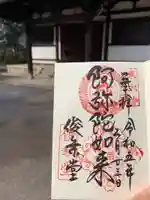 奉拝 令和五年
月十三日
阿弥陀如来
俊乗堂